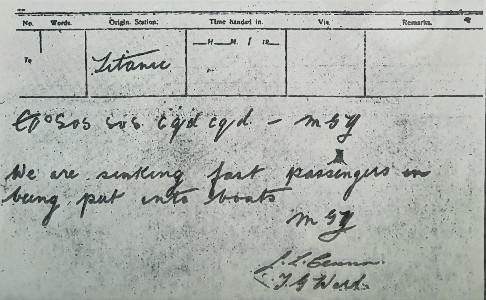 No. Words. Origin. Station: Time handed in. Via. Remarks.
To
Titanic
H M 19
sos sos cqd cqd - MGY
We are sinking fast passengers
being put into boats
MGY